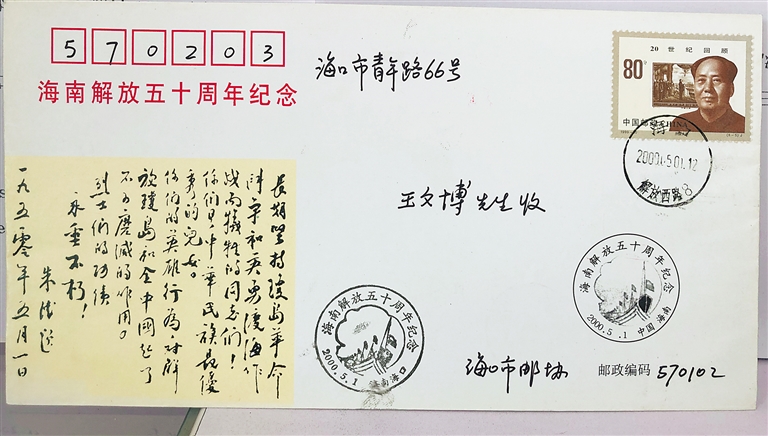 570203
海南解放五十周年纪念
海口市青年路66号
20世纪回顾
80分
中国邮政 CHINA
海口
2000.05.01.12
解放西路8
王文博先生收
长期坚持琼岛革命
斗争和英勇渡海作
战而牺牲的同志们！
你们是中华民族最优
秀的儿女。
你们的英雄行为对解
放琼岛和全中国起了
不可磨灭的作用。
烈士们的功绩
永垂不朽！
朱德题
一九五零年五月一日
海南解放五十周年纪念
2000.5.1
海南海口
海南解放五十周年纪念
2000.5.1 中国 海南
海口市邮协
邮政编码 570102